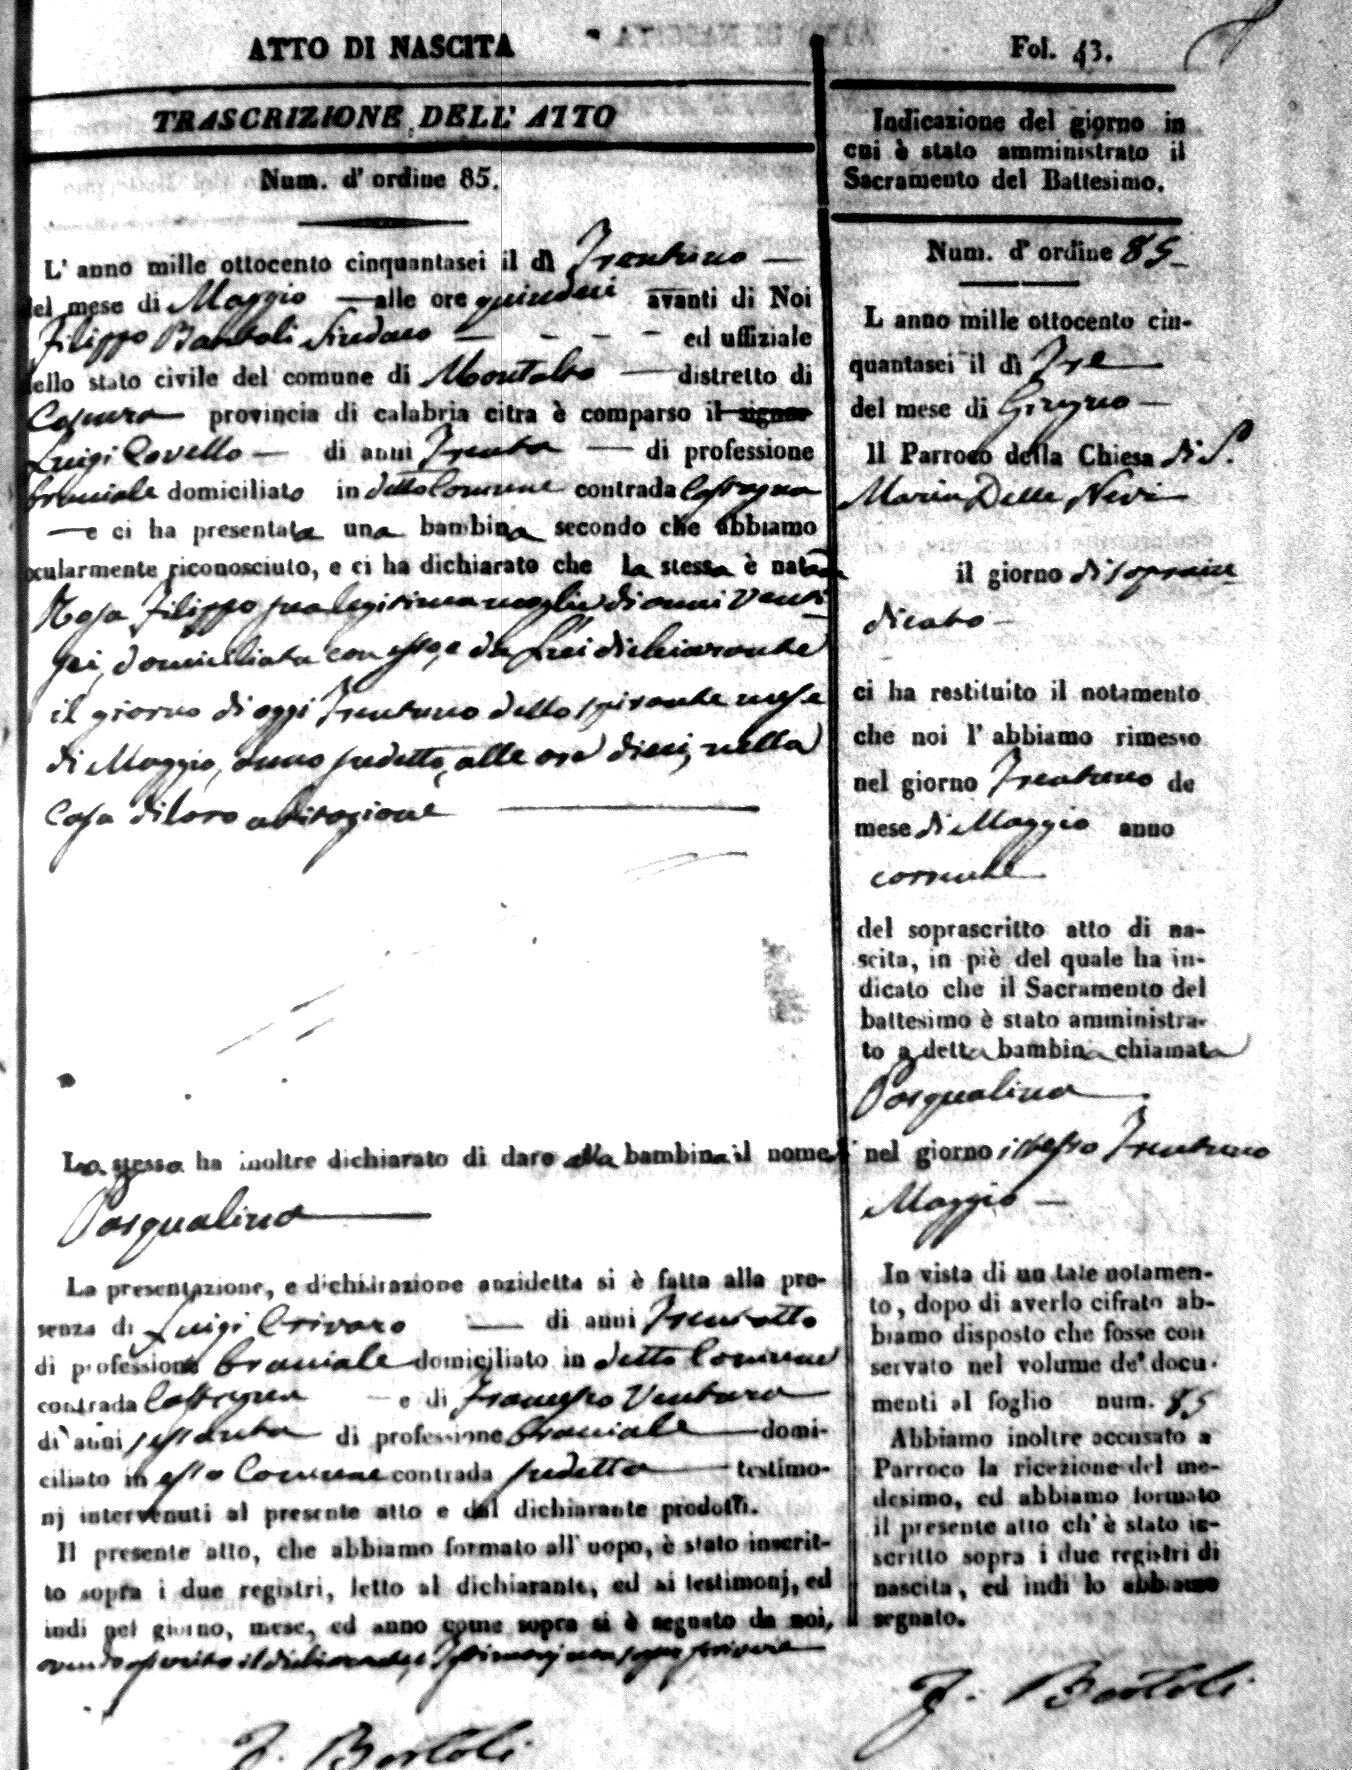 ATTO DI NASCITA
TRASCRIZIONE DELL' ATTO
Num. d' ordine 85.
L' anno mille ottocento cinquantasei il dì Trentuno
del mese di Maggio alle ore quindeci avanti di Noi
Filippo Bartoli Sindaco ed uffiziale
dello stato civile del comune di Montalto distretto di
Cosenza provincia di calabria citra è comparso il signor
Luigi Covello di anni Trenta di professione
braciale domiciliato in detto Comune contrada
e ci ha presentata una bambina secondo che abbiamo
ocularmente riconosciuto, e ci ha dichiarato che la stessa è nata da
Rosa Filippo sua legitima moglie di anni Venti
sei, domiciliata con esso, e da lui dichiarante
il giorno di oggi Trentuno dello spirante mese
di Maggio, anno sudetto, alle ore dieci, nella
casa di loro abitazione
Lo stesso ha inoltre dichiarato di dare alla bambina il nome di
Pasqualina
La presentazione, e dichiarazione anzidetta si è fatta alla pre-
senza di Luigi Crivaro di anni Trentotto
di professione braciale domiciliato in detto Comune
contrada e di Francesco Ventura
di anni sessanta di professione braciale domi-
ciliato in esso Comune contrada sudetta testimo-
nj intervenuti al presente atto e dal dichiarante prodotti.
Il presente atto, che abbiamo formato all' uopo, è stato inscrit-
to sopra i due registri, letto al dichiarante, ed ai testimonj, ed
indi nel giorno, mese, ed anno come sopra si è segnato da noi,
avendo asserito il dichiarante, e Testimonj non sapere scrivere
F. Bartoli
Fol. 43.
Indicazione del giorno in
cui è stato amministrato il
Sacramento del Battesimo.
Num. d' ordine 85
L anno mille ottocento cin-
quantasei il dì Tre
del mese di Giugno
Il Parroco della Chiesa di S.
Maria Delle Nevi
il giorno di sopra in
dicato
ci ha restituito il notamento
che noi l' abbiamo rimesso
nel giorno Trentuno de
mese di Maggio anno
corrente
del soprascritto atto di na-
scita, in piè del quale ha in-
dicato che il Sacramento del
battesimo è stato amministra-
to a detta bambina chiamata
Pasqualina
nel giorno istesso Trentuno
Maggio
In vista di un tale notamen-
to, dopo di averlo cifrato ab-
biamo disposto che fosse con
servato nel volume de' docu-
menti al foglio num. 85
Abbiamo inoltre accusato a
Parroco la ricezione del me-
desimo, ed abbiamo formato
il presente atto ch' è stato in-
scritto sopra i due registri di
nascita, ed indi lo abbiamo
segnato.
F. Bartoli